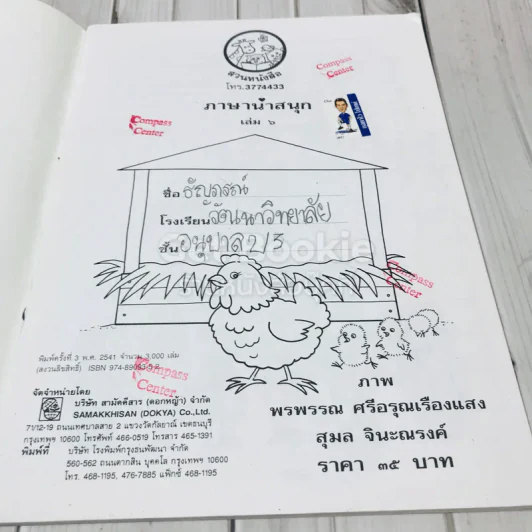 สวนหนังสือ
โทร.3774433
ภาษาน่าสนุก
เล่ม ๖
Compass
Center
Compass
Center
ชื่อ ธัญภรณ์
โรงเรียน
ชั้น อนุบาล 2/3
Compass
Center
พิมพ์ครั้งที่ 3 พ.ศ. 2541 จำนวน 3,000 เล่ม
(สงวนลิขสิทธิ์) ISBN
Compass
Center
จัดจำหน่ายโดย
บริษัท สามัคคีสาร (ดอกหญ้า) จำกัด
SAMAKKHISAN (DOKYA) Co.,Ltd.
71/12-19 ถนนเทศบาลสาย 2 แขวงวัดกัลยาณ์ เขตธนบุรี
กรุงเทพฯ 10600 โทรศัพท์ 466-0519 โทรสาร 465-1391
พิมพ์ที่ บริษัท โรงพิมพ์กรุงธนพัฒนา จำกัด
560-562 ถนนตากสิน บุคคโล กรุงเทพฯ 10600
โทร. 468-1195, 476-7885 แฟ็กซ์ 468-1195
ภาพ
พรพรรณ ศรีอรุณเรืองแสง
สุมล จินะณรงค์
ราคา ๓๕ บาท